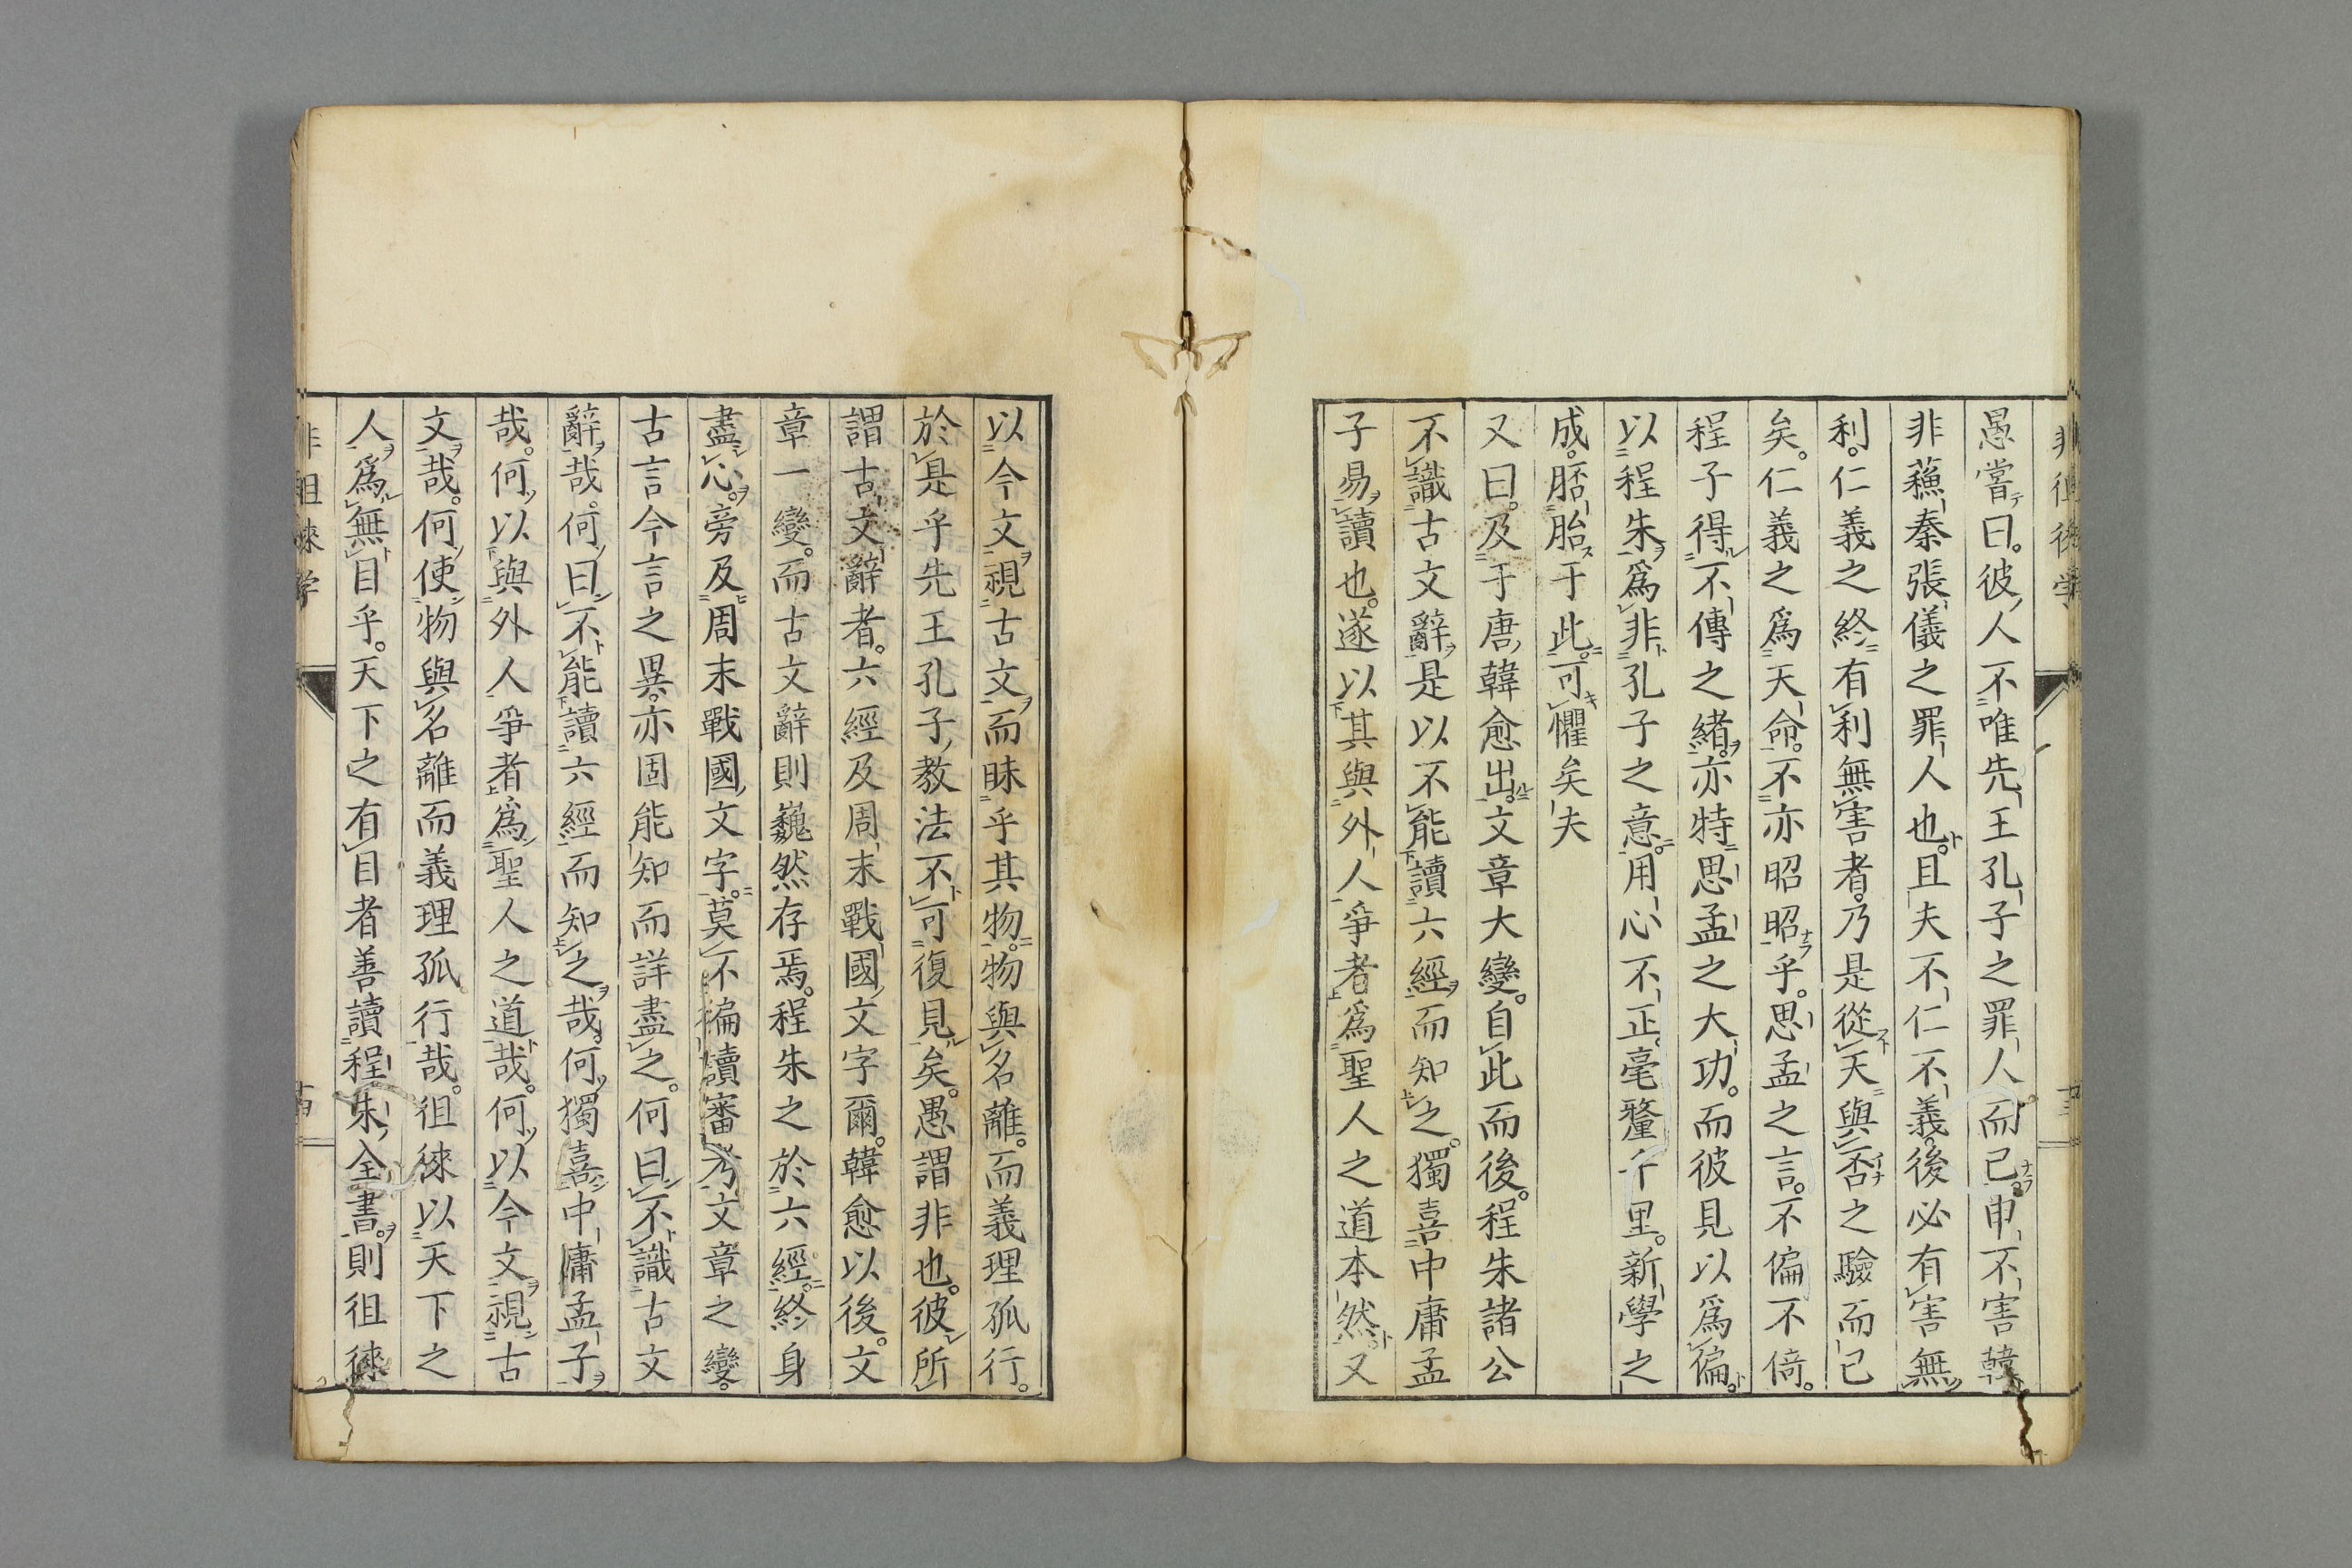 愚嘗曰。彼人不唯先王孔子之罪人而已。申不害韓
非蘓秦張儀之罪人也。且夫不仁不義。後必有害無
利。仁義之終有利無害者。乃是從天與否之驗而已
矣。仁義之爲天命。不亦昭昭乎。思孟之言。不偏不倚。
程子得不傳之緒。亦特思孟之大功。而彼見以爲偏。
以程朱爲非孔子之意。用心不正。毫釐千里。新學之
成。胚胎于此。可懼矣夫
又曰。及于唐韓愈出。文章大變。自此而後。程朱諸公
不識古文辭。是以不能讀六經而知之。獨喜中庸孟
子易讀也。遂以其與外人爭者爲聖人之道本然。又
以今文視古文。而昧乎其物。物與名離。而義理孤行。
於是乎先王孔子教法不可復見矣。愚謂非也。彼所
謂古文辭者。六經及周末戰國文字爾。韓愈以後。文
章一變。而古文辭則巍然存焉。程朱之於六經。終身
盡心。旁及周末戰國文字。莫不徧讀審考。文章之變。
古言今言之異。亦固能知而詳盡之。何曰不識古文
辭哉。何曰不能讀六經而知之哉。何獨喜中庸孟子
哉。何以與外人爭者爲聖人之道哉。何以今文視古
文哉。何使物與名離而義理孤行哉。徂徠以天下之
人爲無目乎。天下之有目者善讀程朱全書。則徂徠
非徂徠学
十四